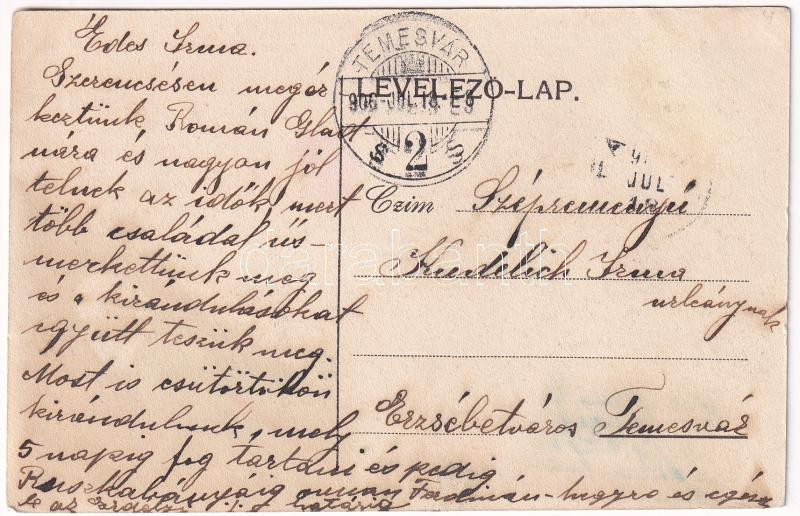 Édes Irma.
Szerencsésen megér
keztünk Román Glad
nára és nagyon jól
telnek az idők mert
több családdal üs-
merkettünk meg
és a kirándulásokat
együtt teszük meg.
Most is csütörtökön
kirándulunk, mely
5 napig fog tartani és pedig
Ruszkabányáig onnan
le az Erdélyi határig
TEMESVÁR
906 JUL 18 E9
2
LEVELEZŐ-LAP.
JUL
Czim Szépreményű
Kudelich Irma
urleánynak
Erzsébetváros Temesvár
darabanth